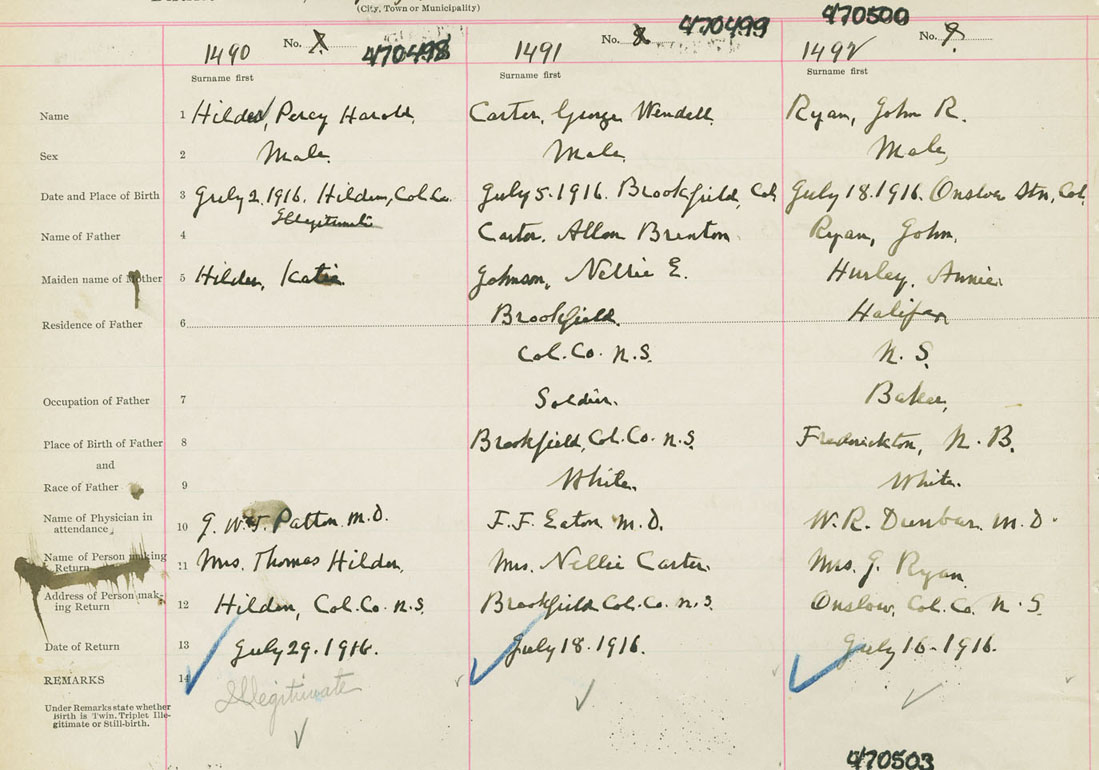 (City, Town or Municipality)
1490 No. 7 470498
1491 No. 8 470499
1492 No. 9 470500
Surname first Surname first Surname first
Name 1 Percy Harold Carter, George Wendell Ryan, John R.
Sex 2 Male Male Male
Date and Place of Birth 3 July 2. 1916. Hilden, Col. Co. July 5. 1916. Brookfield, Col July 18. 1916. Onslow Stn, Col.
Illegitimate
Name of Father 4 Carter. Allan Brenton Ryan, John.
Maiden name of Mother 5 Hilden, Katie Johnson, Nellie E. Hurley, Annie
Residence of Father 6 Brookfield Halifax
Col. Co. N.S. N.S.
Occupation of Father 7 Soldier. Baker,
Place of Birth of Father 8 Brookfield, Col. Co. N.S. Frederickton, N.B.
and
Race of Father 9 White. White.
Name of Physician in
attendance 10 Patton M.D. F.F. Eaton M.D. W.R. Dunbar M.D.
Name of Person making
Return 11 Mrs. Thomas Hilden, Mrs. Nellie Carter. Mrs. J. Ryan
Address of Person mak-
ing Return 12 Hilden, Col. Co. N.S. Brookfield Col. Co. N.S. Onslow, Col. Co. N.S.
Date of Return 13 July 29. 1916. July 18. 1916. July 16-1916.
REMARKS 14 Illegitimate
Under Remarks state whether
Birth is Twin, Triplet Ille-
gitimate or Still-birth.
470503